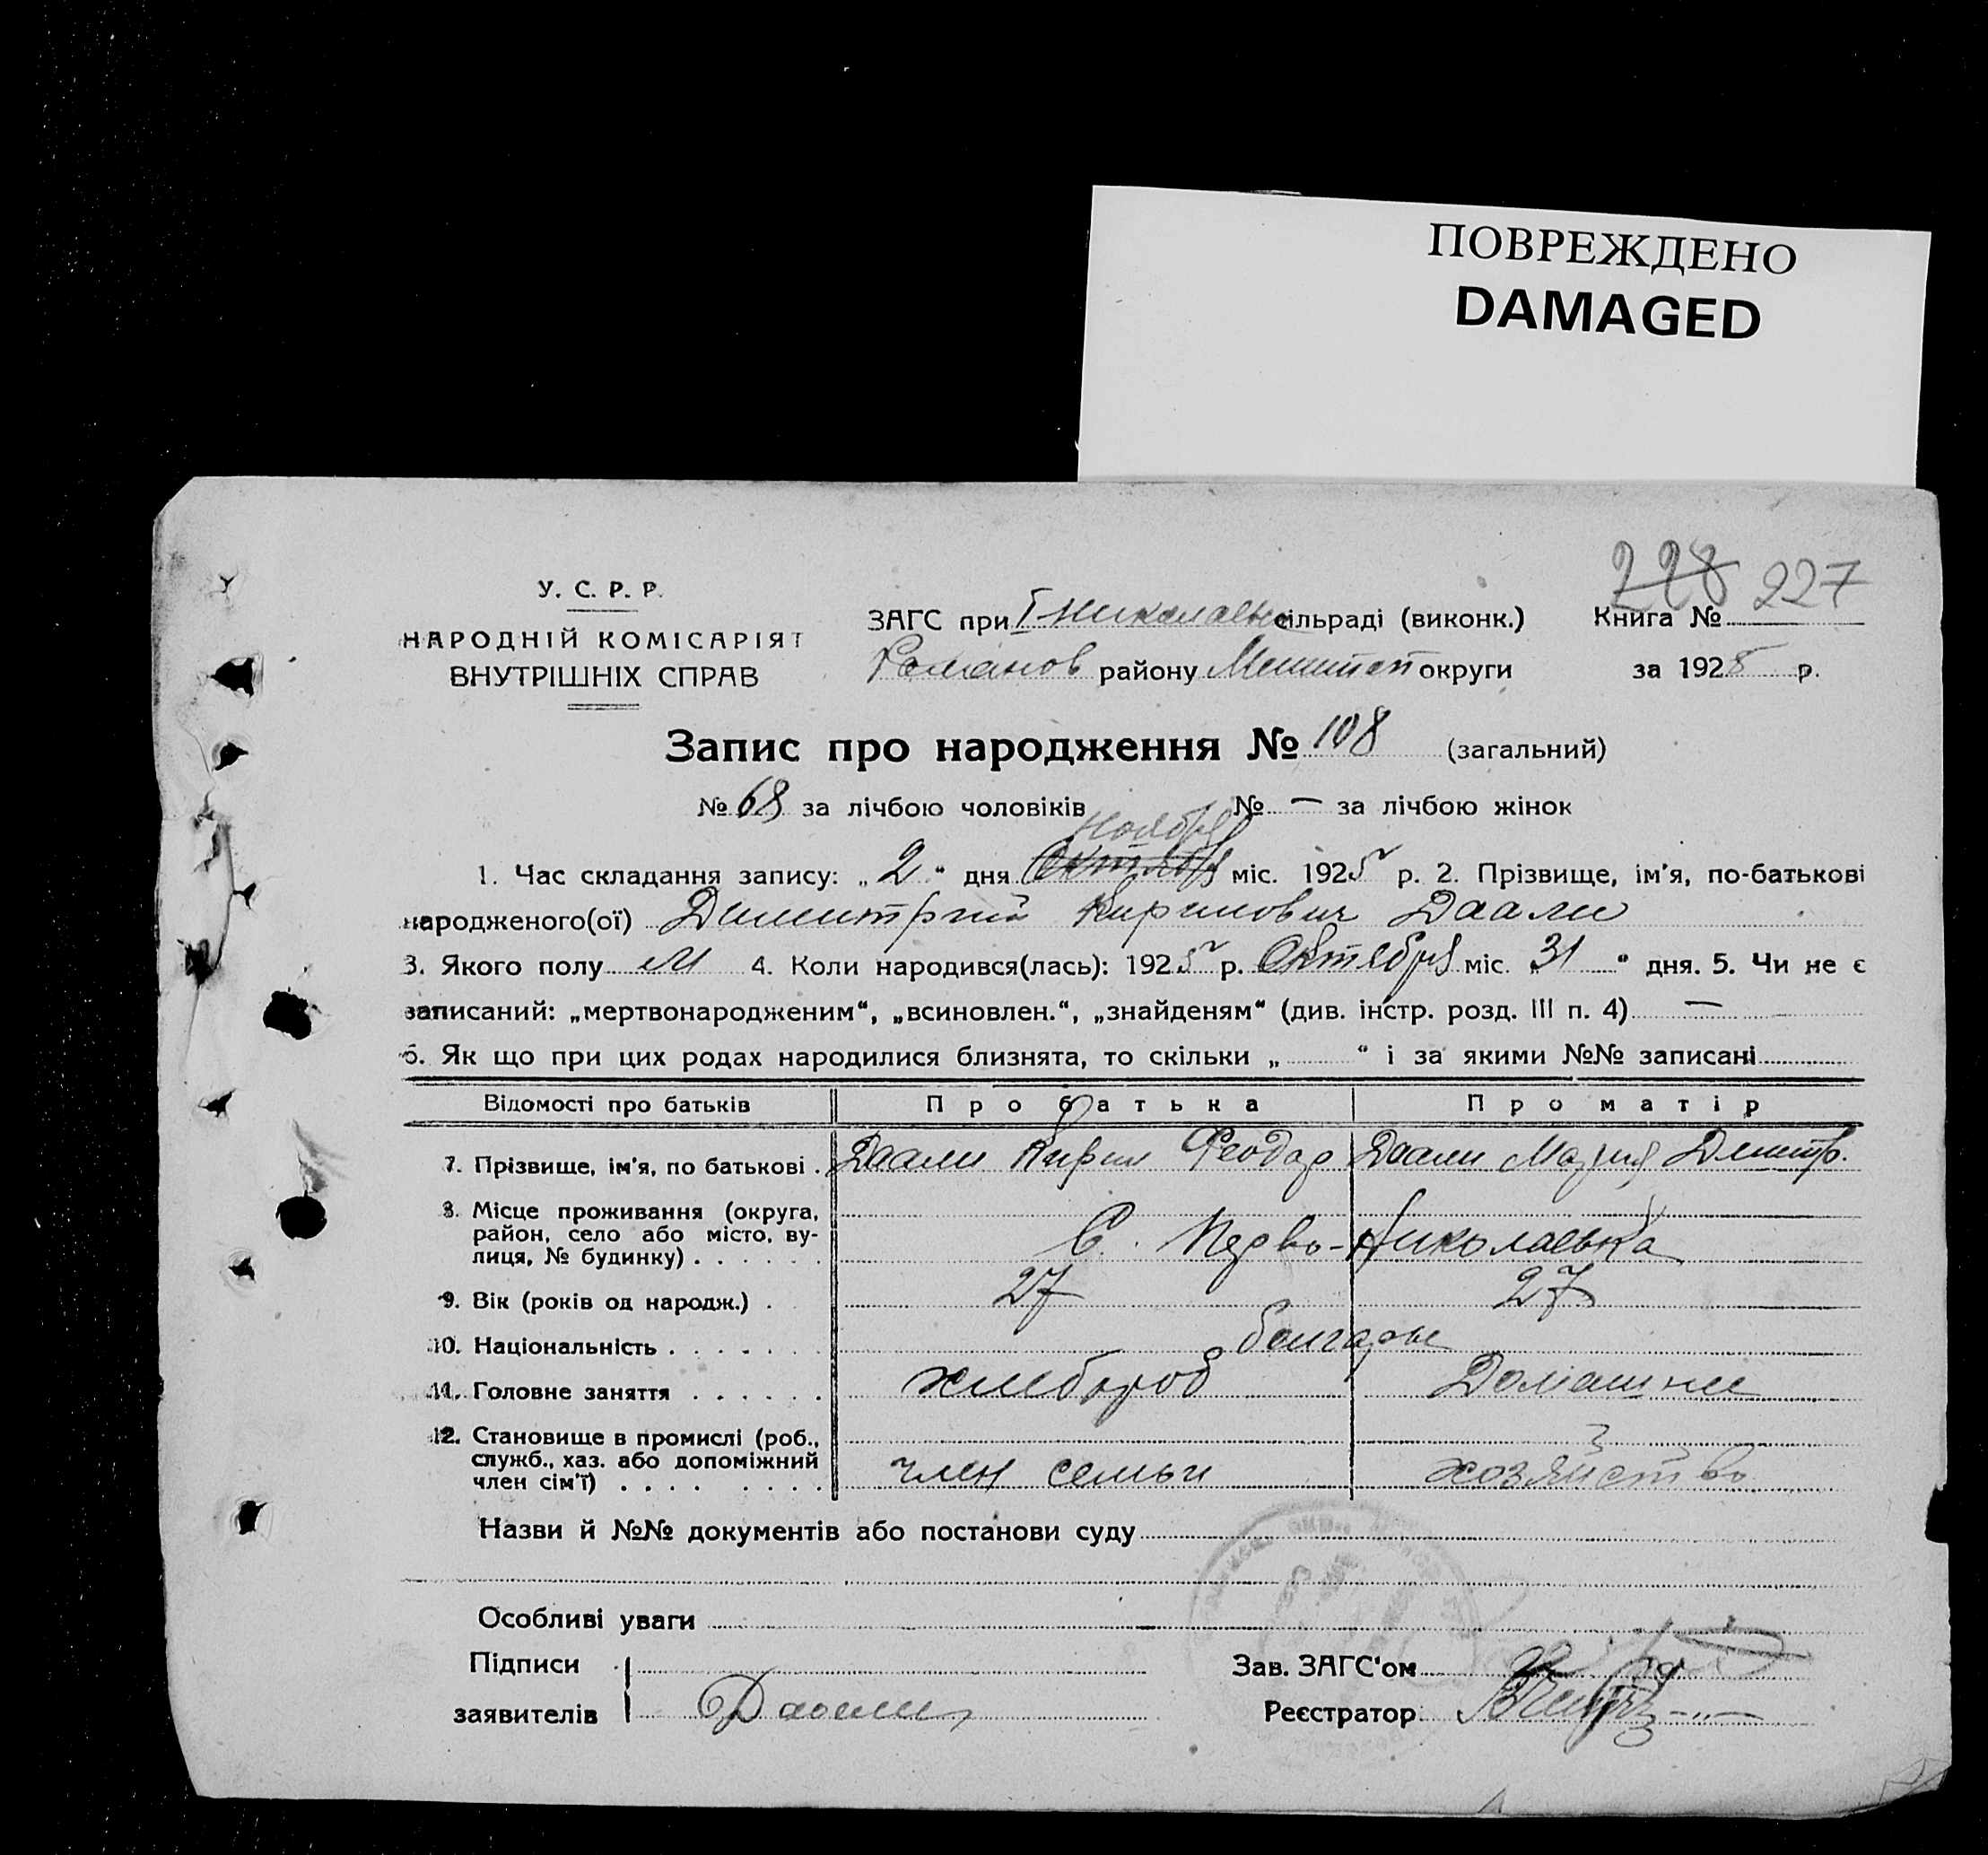 ПОВРЕЖДЕНО
DAMAGED
228 227
У. С. Р. Р.
НАРОДНІЙ КОМІСАРІЯТ
ВНУТРІШНІХ СПРАВ
ЗАГС при І Николаевс сільраді (виконк.) Книга №
Романов району Мелитоп округи за 1925 р.
Запис про народження № 108 (загальний)
№ 68 за лічбою чоловіків № — за лічбою жінок
Ноября
1. Час складання запису: „ 2 “ дня Октября міс. 1925 р. 2. Прізвище, ім'я, по-батькові
народженого(ої) Димитрий Кирилович Даали
3. Якого полу М 4. Коли народився(лась): 1925 р. Октября міс. „ 31 “ дня. 5. Чи не є
записаний: „мертвонародженим“, „всиновлен.“, „знайденям“ (див. інстр. розд. III п. 4) —
6. Як що при цих родах народилися близнята, то скільки „ “ і за якими №№ записані
Відомості про батьків Про батька Про матір
7. Прізвище, ім'я, по батькові . Даали Кирил Феодор Даали Мария Дмитр.
8. Місце проживання (округа,
район, село або місто, ву-
лиця, № будинку) . . . . . . С. Перво-Николаевка
9. Вік (років од народж.) . 27 27
10. Національність . . . . . . . болгары
11. Головне заняття . . . . . . хлебороб Домашнее
12. Становище в промислі (роб.,
служб., хаз. або допоміжний
член сім'ї) . . . . . . . . член семьи хозяйство
Назви й №№ документів або постанови суду
Особливі уваги
Підписи Зав. ЗАГС'ом
заявителів Даали Реєстратор